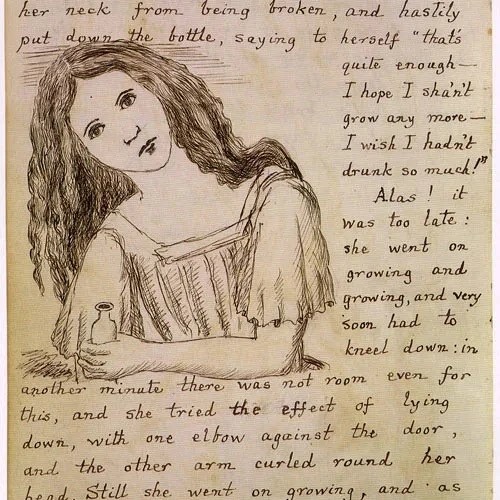 her neck from being broken, and hastily
put down the bottle, saying to herself "that's
quite enough—
I hope I sha'n't
grow any more—
I wish I hadn't
drunk so much!"
Alas! it
was too late:
she went on
growing and
growing, and very
soon had to
kneel down: in
another minute there was not room even for
this, and she tried the effect of lying
down, with one elbow against the door,
and the other arm curled round her
head. Still she went on growing, and as